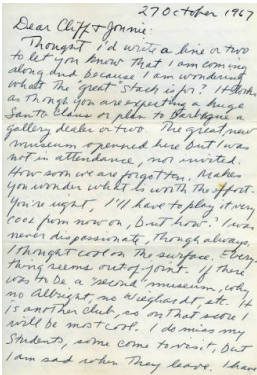 27 October 1967
Dear Cliff & Jonnie:
Thought i'd write a line or two
to let you know that I am coming
along and because I am wondering
what the "great" stack is for? It looks
as though you are expecting a huge
Santa Claus or plan to barbeque a
gallery dealer or two. The great new
museum openned here but I was
not in attendance, nor invited.
How soon we are forgotten. Makes
you wonder what is worth the effort.
You're right, I'll have to play it very
cool from now on, but how? I was
never dispassionate, though always,
I thought cool on the surface. Every-
thing seems out of joint. If there
was to be a "second" museum, why
no Albright, no Weeghardt, etc. It
is another club, so on that score I
will be most cool. I do miss my
students, some come to visit, but
I am sad when they leave. I have